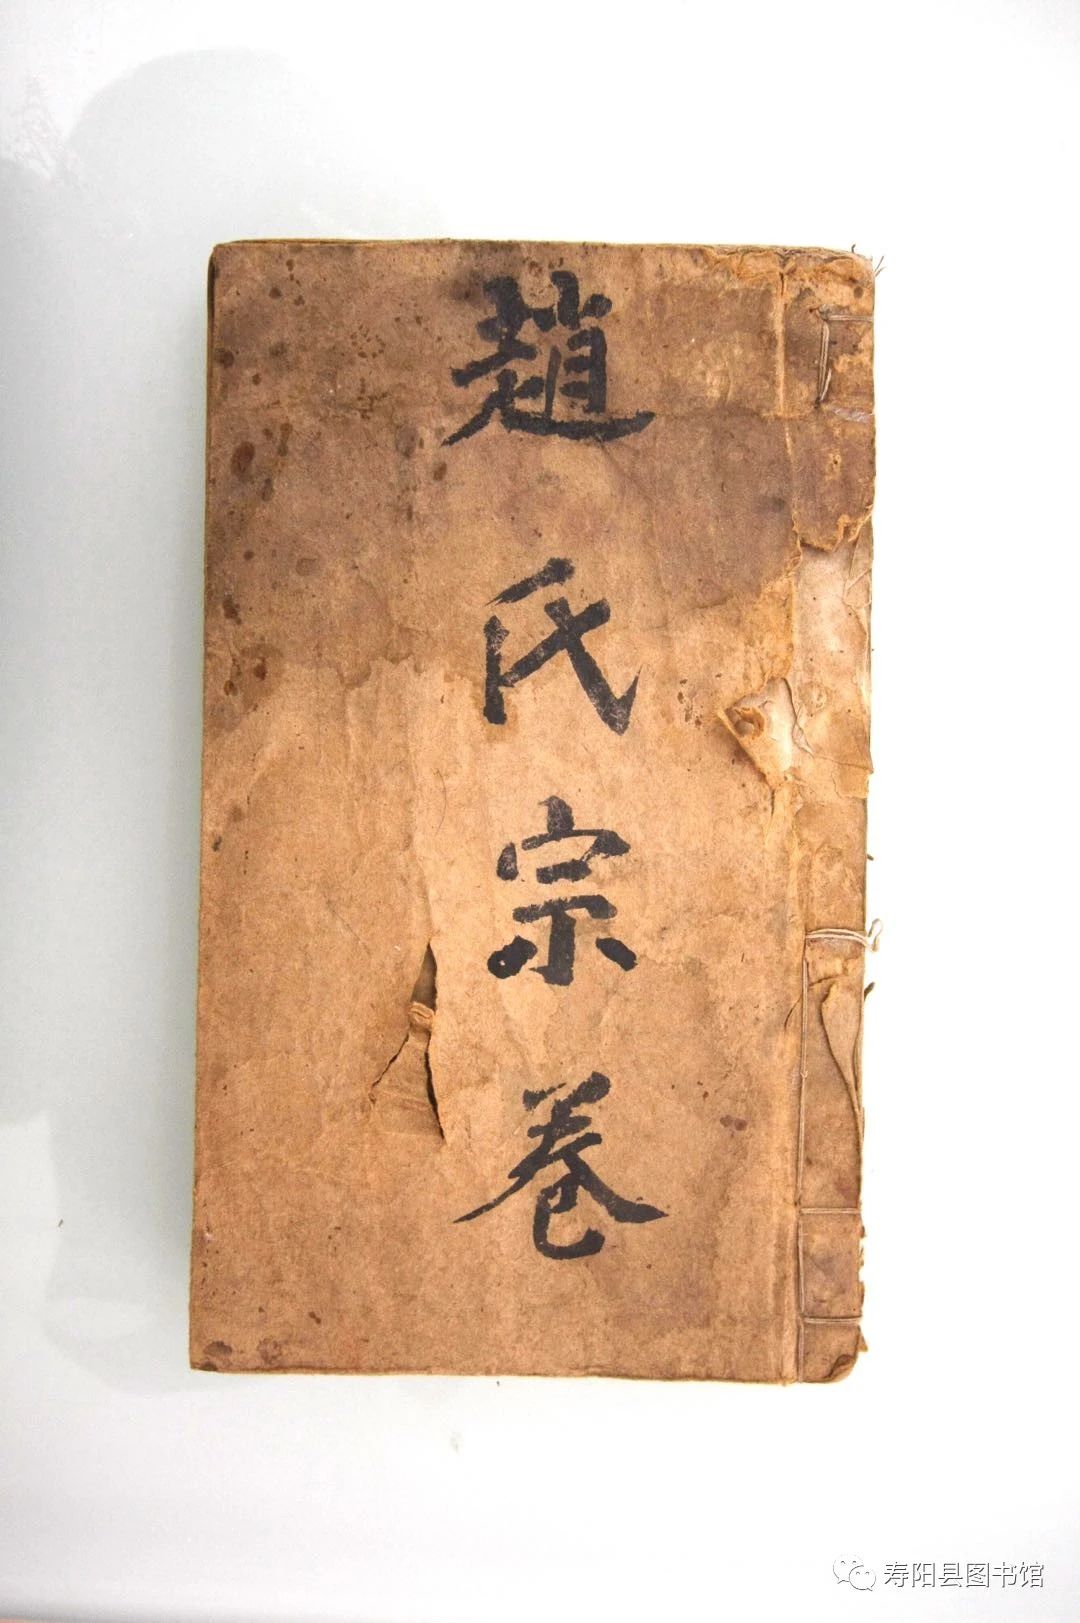 趙氏宗卷
寿阳县图书馆